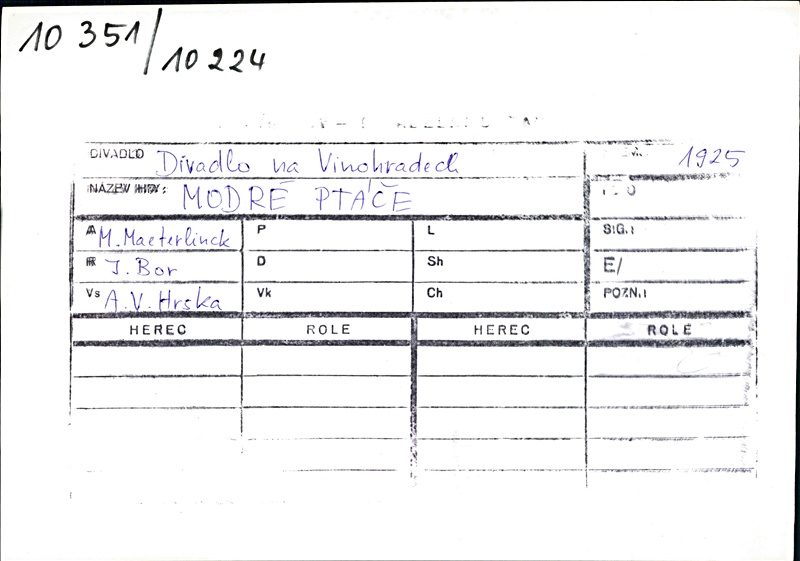 10 351/10 224
DIVADLO Divadlo na Vinohradech 1925
NÁZEV HRY: MODRÉ PTÁČE
A M. Maeterlinck P L SIG.:
R J. Bor D Sh E/
Vs A.V. Hrska Vk Ch POZN.:
HEREC ROLE HEREC ROLE